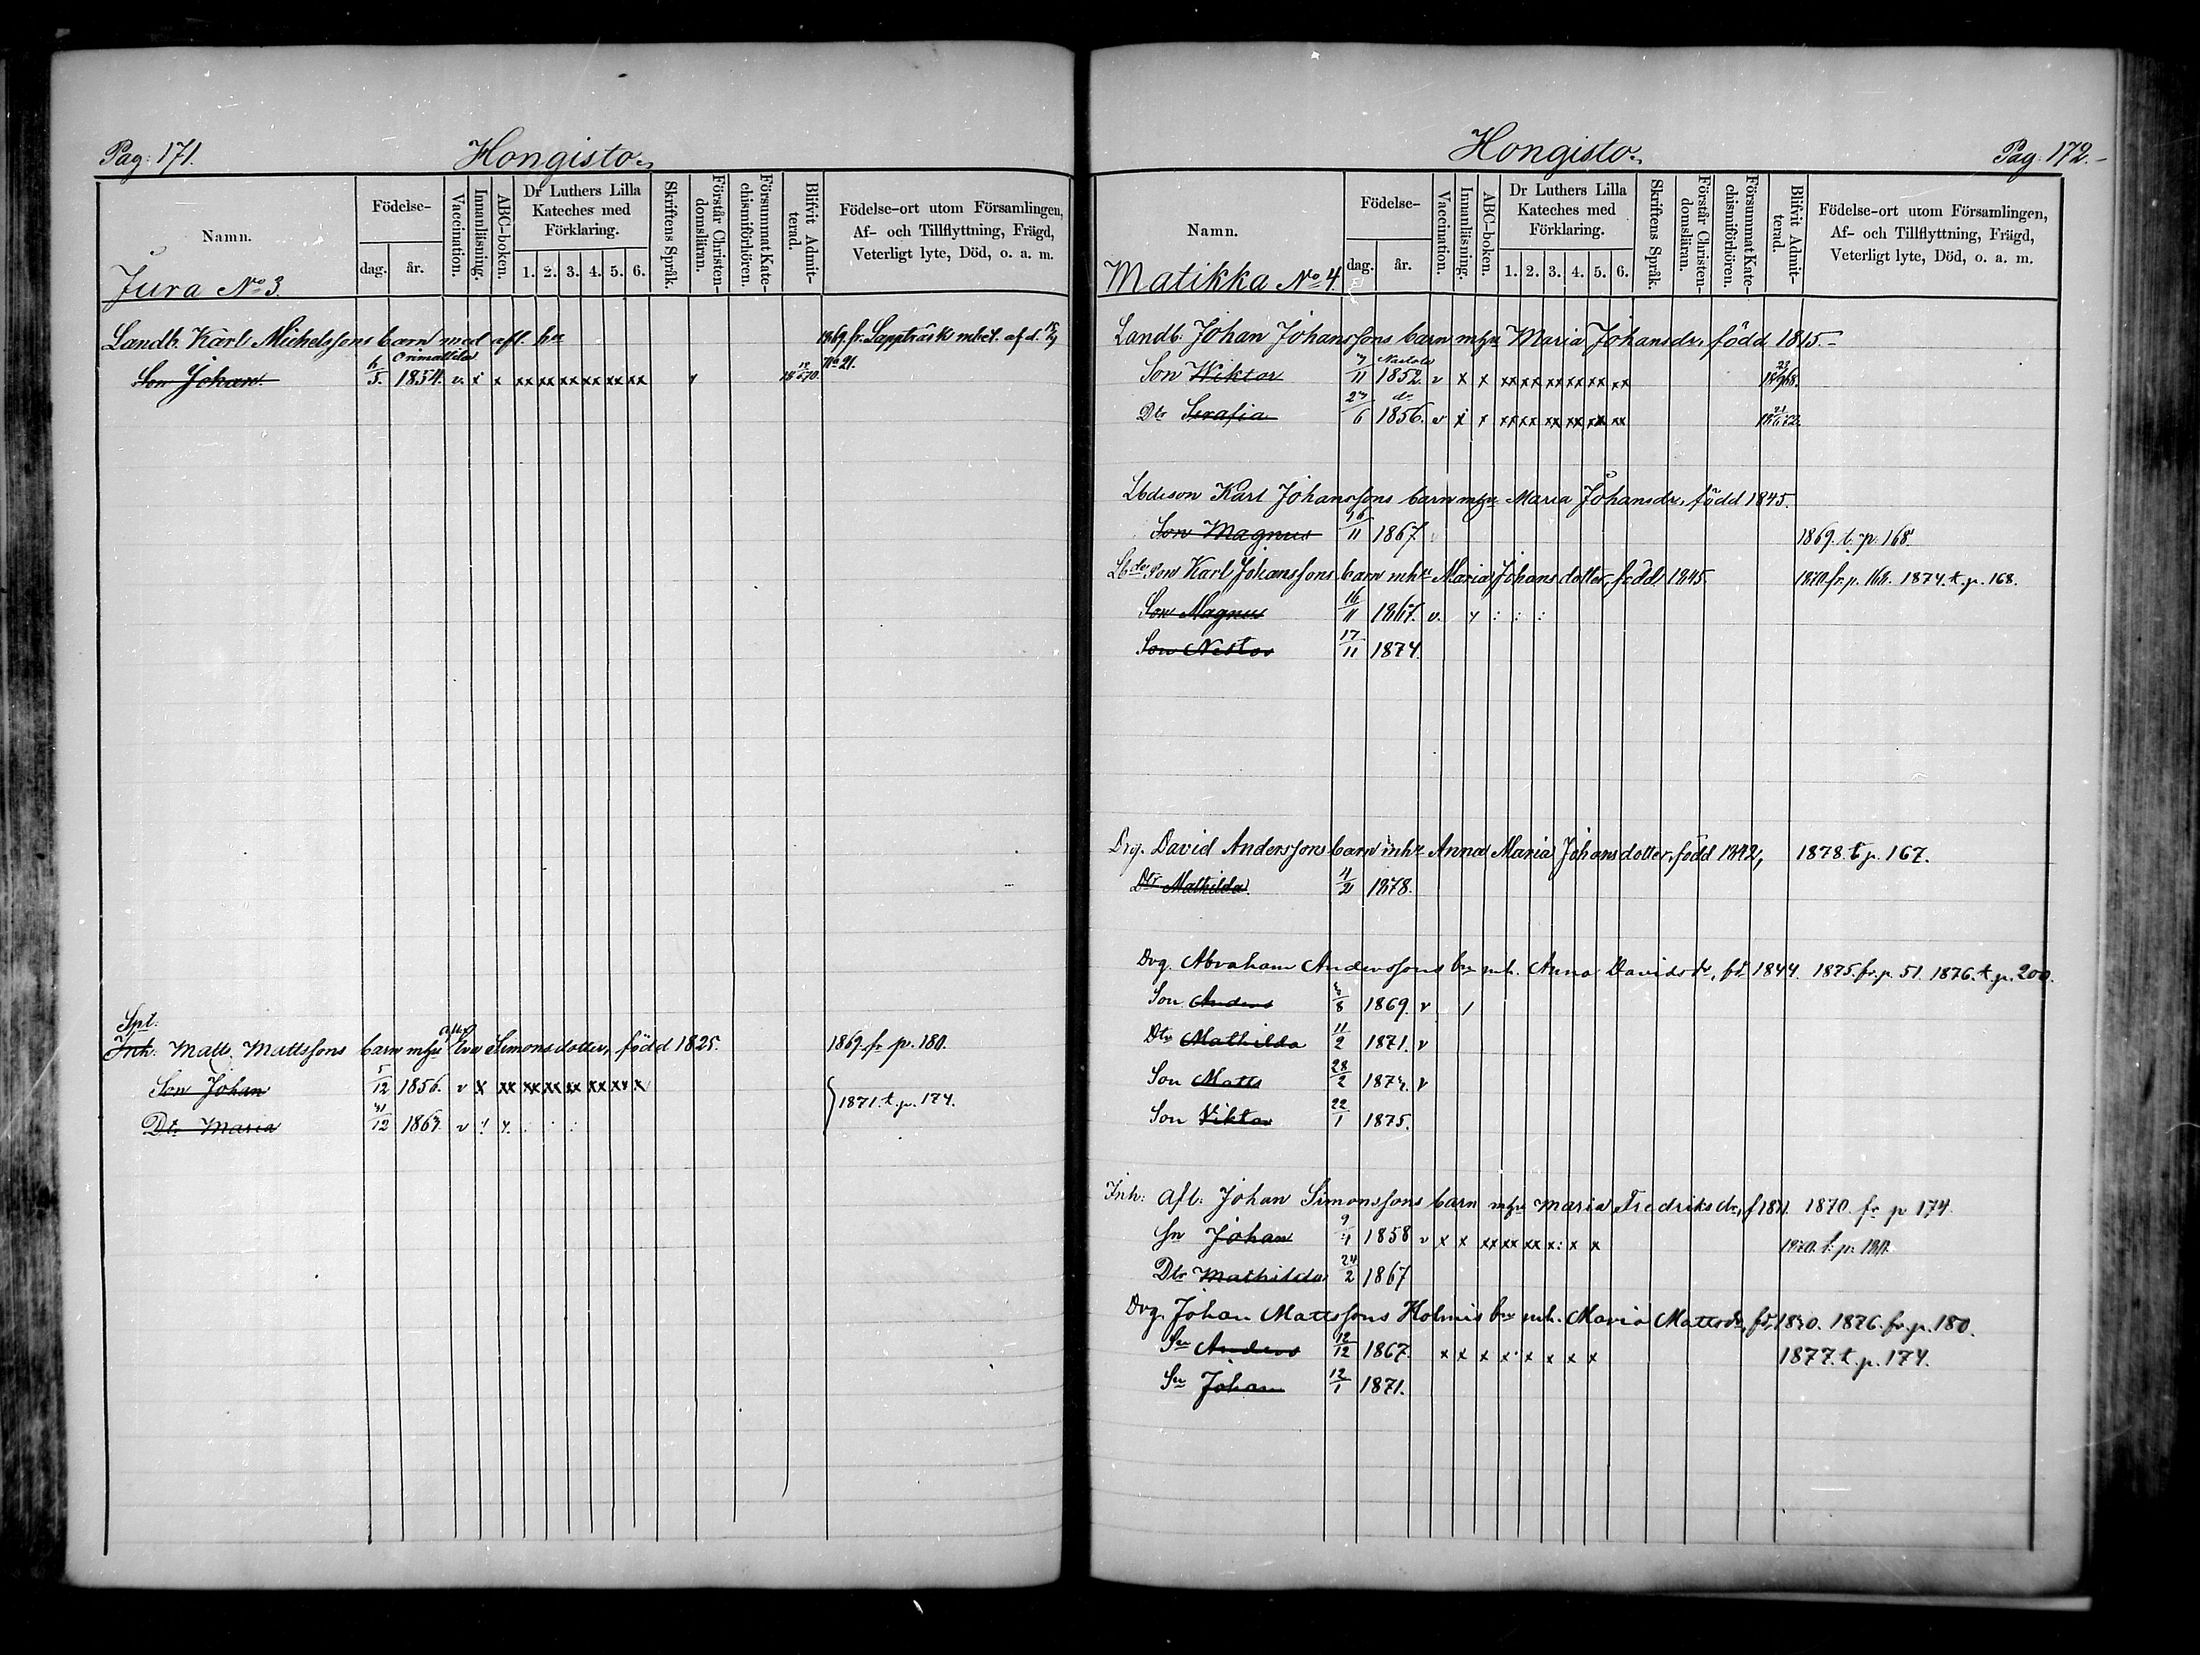 Pag. 171.
Hongisto.
Namn.
Födelse-
dag.
år.
Vaccination.
Innanläsning.
ABC-boken.
Dr Luthers Lilla
Kateches med
Förklaring.
1. 2. 3. 4. 5. 6.
Skriftens Språk.
Förstår Christen-
domsläran.
Försummat Kate-
chismiförhören.
Blifvit Admit-
terad.
Födelse-ort utom Församlingen,
Af- och Tillflyttning, Frägd,
Veterligt lyte, Död, o. a. m.
Jura No 3.
Landb. Karl Michelssons barn med afl. ha 1869. fr. Lappträsk mbet. af d.
Orimattila No 21.
Son Johan 6/5. 1854. v. x x xx xx xx xx xx xx
Spl.
Inh. Matts Mattssons barn mhu Eva Simonsdotter, född 1825. 1869. fr p. 180.
Son Johan 5/12 1856. v x xx xx xx xx xx xx x
1871. t. p. 174.
Dtr Maria 31/12 1863. v
Hongisto.
Pag. 172.
Namn.
Födelse-
dag.
år.
Vaccination.
Innanläsning.
ABC-boken.
Dr Luthers Lilla
Kateches med
Förklaring.
1. 2. 3. 4. 5. 6.
Skriftens Språk.
Förstår Christen-
domsläran.
Försummat Kate-
chismiförhören.
Blifvit Admit-
terad.
Födelse-ort utom Församlingen,
Af- och Tillflyttning, Frägd,
Veterligt lyte, Död, o. a. m.
Matikka No 4.
Landb. Johan Johanssons barn mhu Maria Johansdr, född 1815.
Nastola
Son Wiktor 7/11 1852. v x x xx xx xx xx xx xx
do
Dtr Serafia 27/6 1856. v x x xx xx xx xx xx xx
Lbdeson Karl Johanssons barn mhu Maria Johansdr, född 1845.
Son Magnus 16/11 1867 1869. t. p. 168.
Lbdes Son Karl Johanssons barn mhu Maria Johansdotter, född 1845 1870. fr. p. 168. 1874. t. p. 168.
Son Magnus 16/11 1867. v.
Son Nestor 17/11 1874.
Drg. David Anderssons barn mhu Anna Maria Johansdotter, född 1842, 1878. t p. 167.
Dtr Mathilda. 4/2 1878.
Drg. Abraham Anderssons bn mh. Anna Davidsdr, fd. 1844. 1875. fr. p. 51. 1876. t. p. 200.
Son Anders 1869. v
Dtr Mathilda 11/2 1871. v
Son Matts 28/2 1873. v
Son Viktor 22/1 1875.
Inh: Afl. Johan Simonssons barn mhu Maria Fredriksdr, 1870. fr p 174.
Sn Johan 1858 v x x xx xx xx x: x x 1870. t. p. 180.
Dtr Mathilda 24/2 1867
Drg. Johan Mattssons Holmis bn mh. Maria Mattsdr, fd. 1830. 1876. fr. p. 180.
Sn Anders 12/12 1867. x x x x x x x x 1877. t. p. 174.
Sn Johan 12/1 1871.